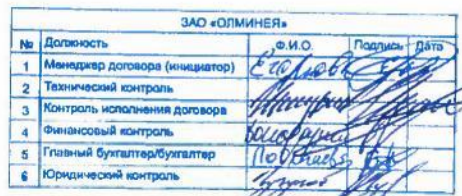 ЗАО «ОЛМИНЕЯ»
№ Должность Ф.И.О. Подпись Дата
1 Менеджер договора (инициатор)
2 Технический контроль
3 Контроль исполнения договора
4 Финансовый контроль
5 Главный бухгалтер/бухгалтер
6 Юридический контроль